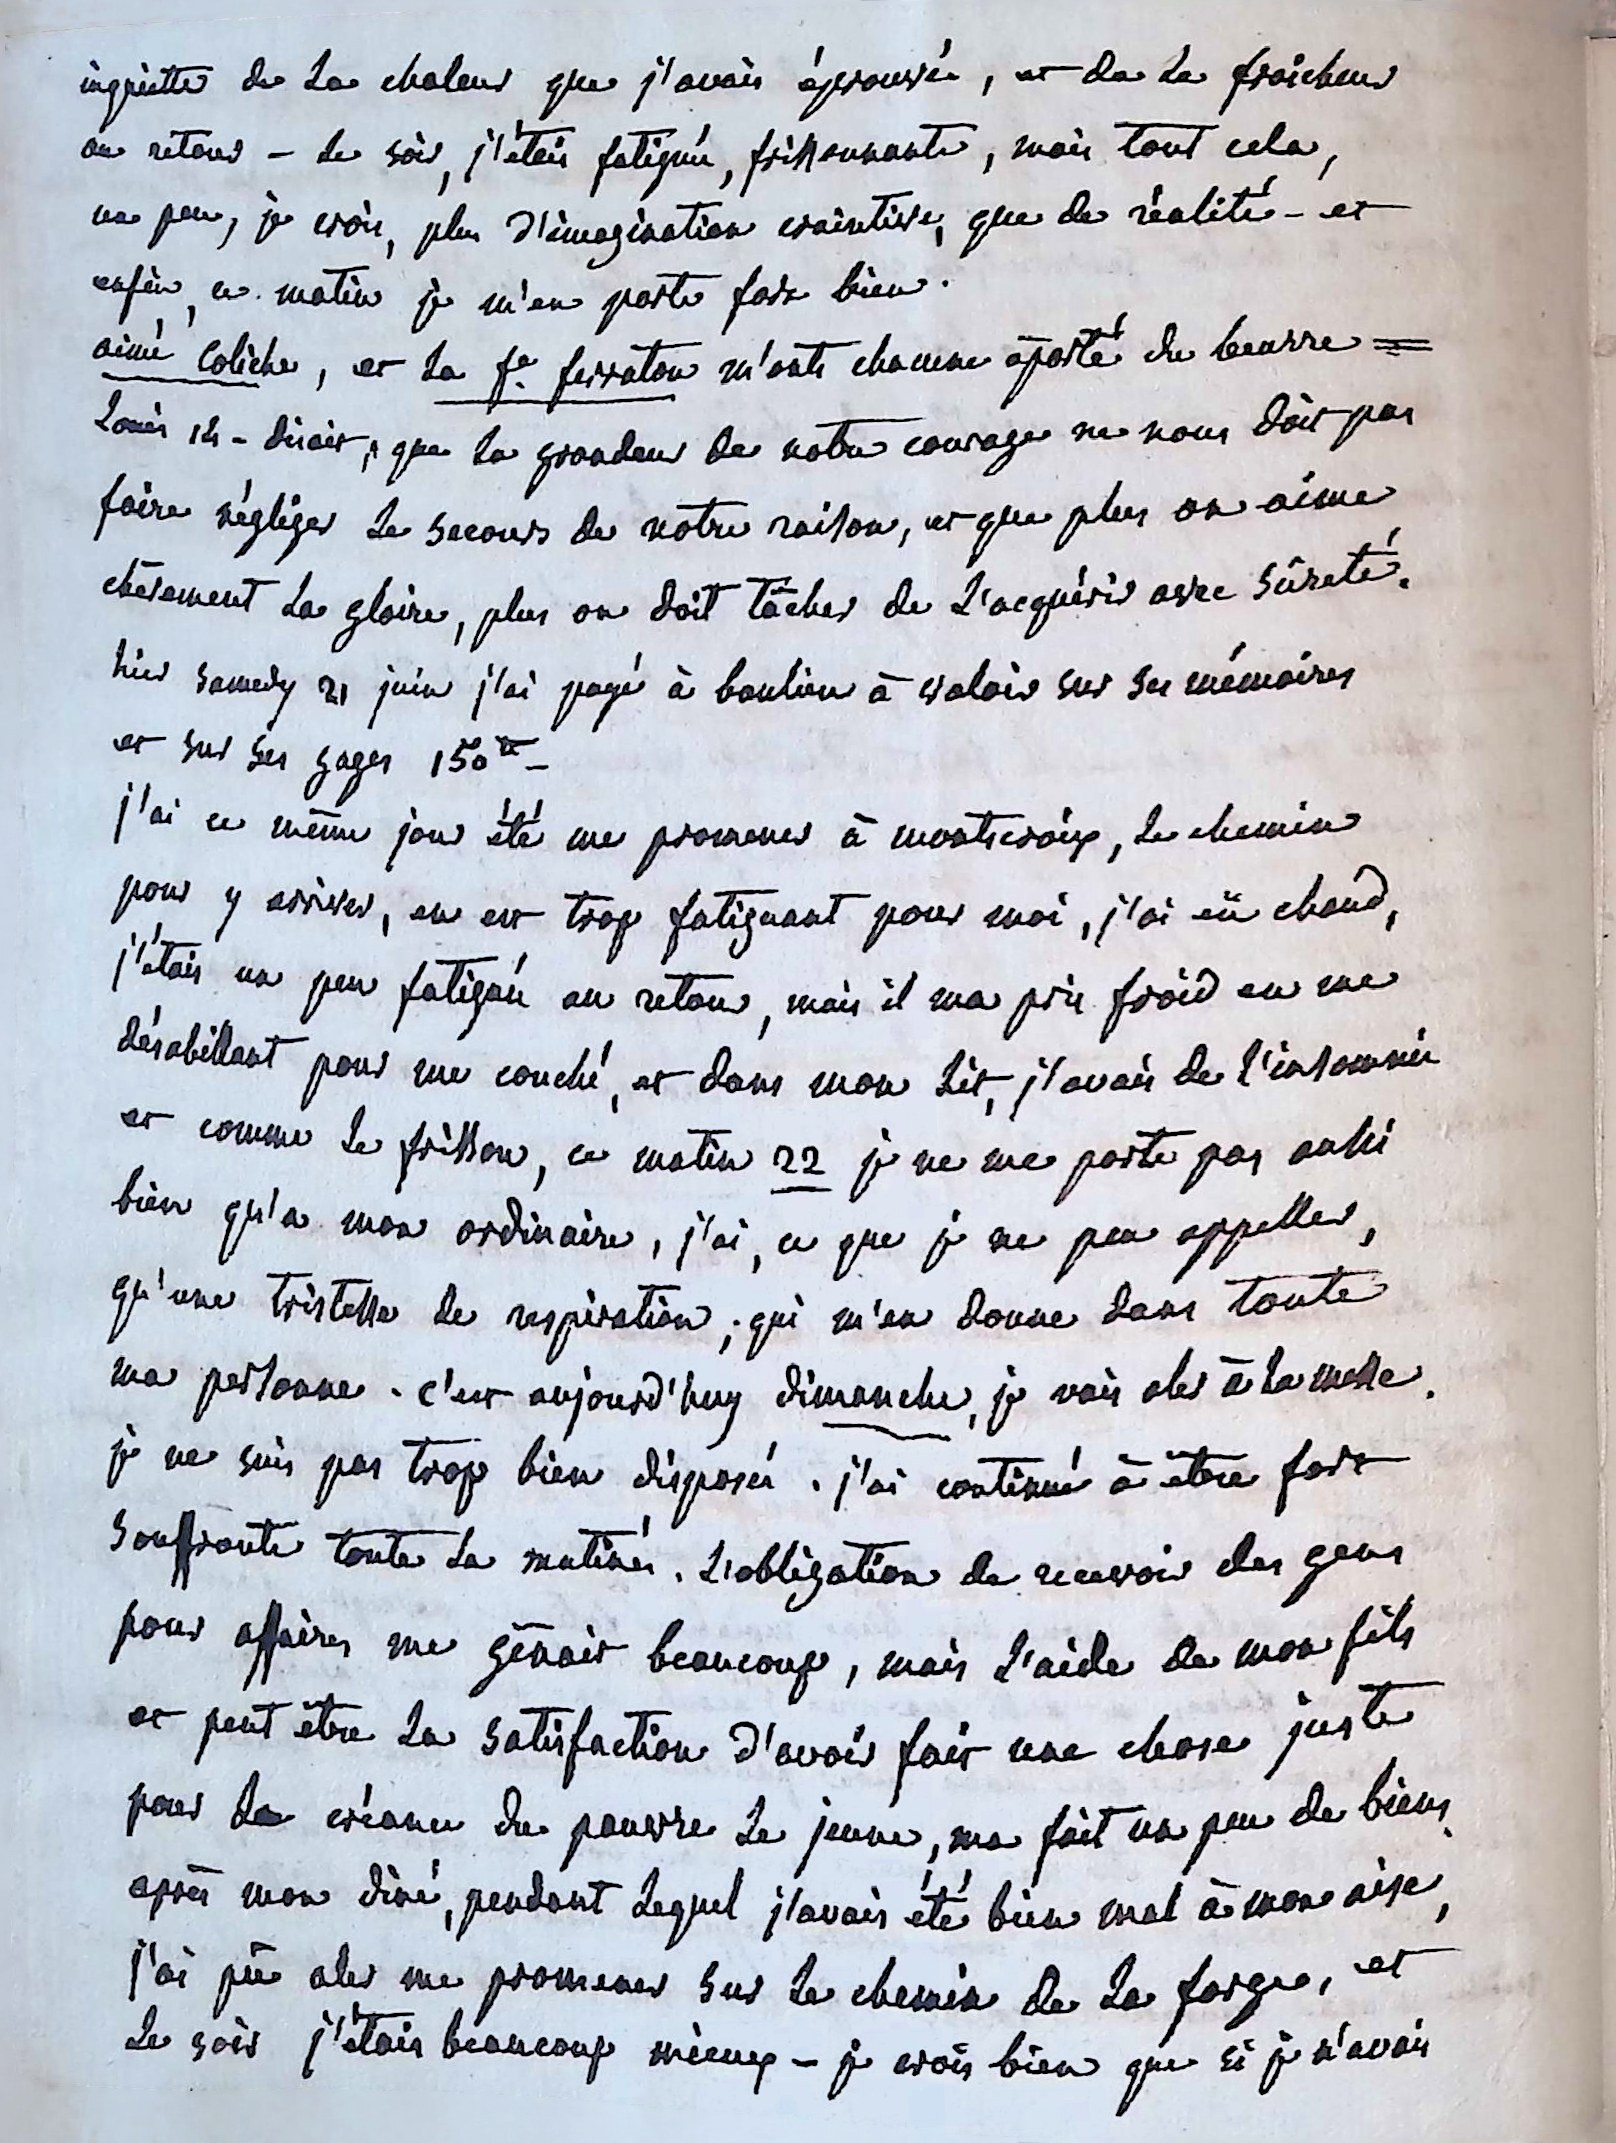 inquiette de La chaleur que j'avais éprouvée, et de La fraicheur
au retour – Le soir, j'étais fatiguée, frissonnante, mais tout cela,
un peu, je crois, plus d'imagination craintive, que de réalité – et
enfin, ce matin je m'en porte fort bien.
aimé Coliche, et La fe. ferraton m'onts chacune aporté du beurre =
Louis 14 – disait, que La grandeur de notre courage ne nous doit pas
faire négliger Le secours de notre raison, et que plus on aime
chèrement La gloire, plus on doit tâcher de L'acquérir avec sûreté.
hier samedy 21 juin j'ai payé à boulieu à valoir sur ses mémoires
et sur ses gages 150tt –
j'ai ce même jour été me promener à montcroix, Le chemin
pour y arriver, en est trop fatiguant pour moi, j'ai eü chaud,
j'étais un peu fatiguée au retour, mais il ma pris froid en me
désabillant pour me couché, et dans mon Lit, j'avais de L'insomnie
et comme Le frisson, ce matin 22 je ne me porte pas aussi
bien qu'a mon ordinaire, j'ai, ce que je ne peu appeller,
qu'une tristesse de respiration, qui m'en donne dans toute
ma personne. c'est aujourd'huy dimanche, je vais aler à La messe.
je ne suis pas trop bien disposée. j'ai continué à être fort
souffrante toute La matinée. L'obligation de recevoir des gens
pour affaires me gênait beaucoup, mais L'aide de mon fils
et peut être La satisfaction d'avoir fait une chose juste
pour La créance du pauvre Le jeune, ma fait un peu de bien,
après mon diné, pendant Lequel j'avais été bien mal à mon aise,
j'ai pûe aler me promener sur Le chemin de La forge, et
Le soir j'étais beaucoup mieux – je crois bien que si je n'avais